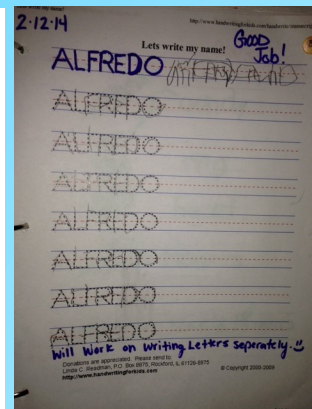 2.12.14
Lets write my name!
GOOD
Job!
ALFREDO
ALFREDO
ALFREDO
ALFREDO
ALFREDO
ALFREDO
ALFREDO
ALFREDO
Will Work on Writing Letters seperately.
Donations are appreciated. Please send to:
Linda C. Readman, P.O. Box 8975, Rockford, IL 61126-8975
http://www.handwritingforkids.com
© Copyright 2000-2009